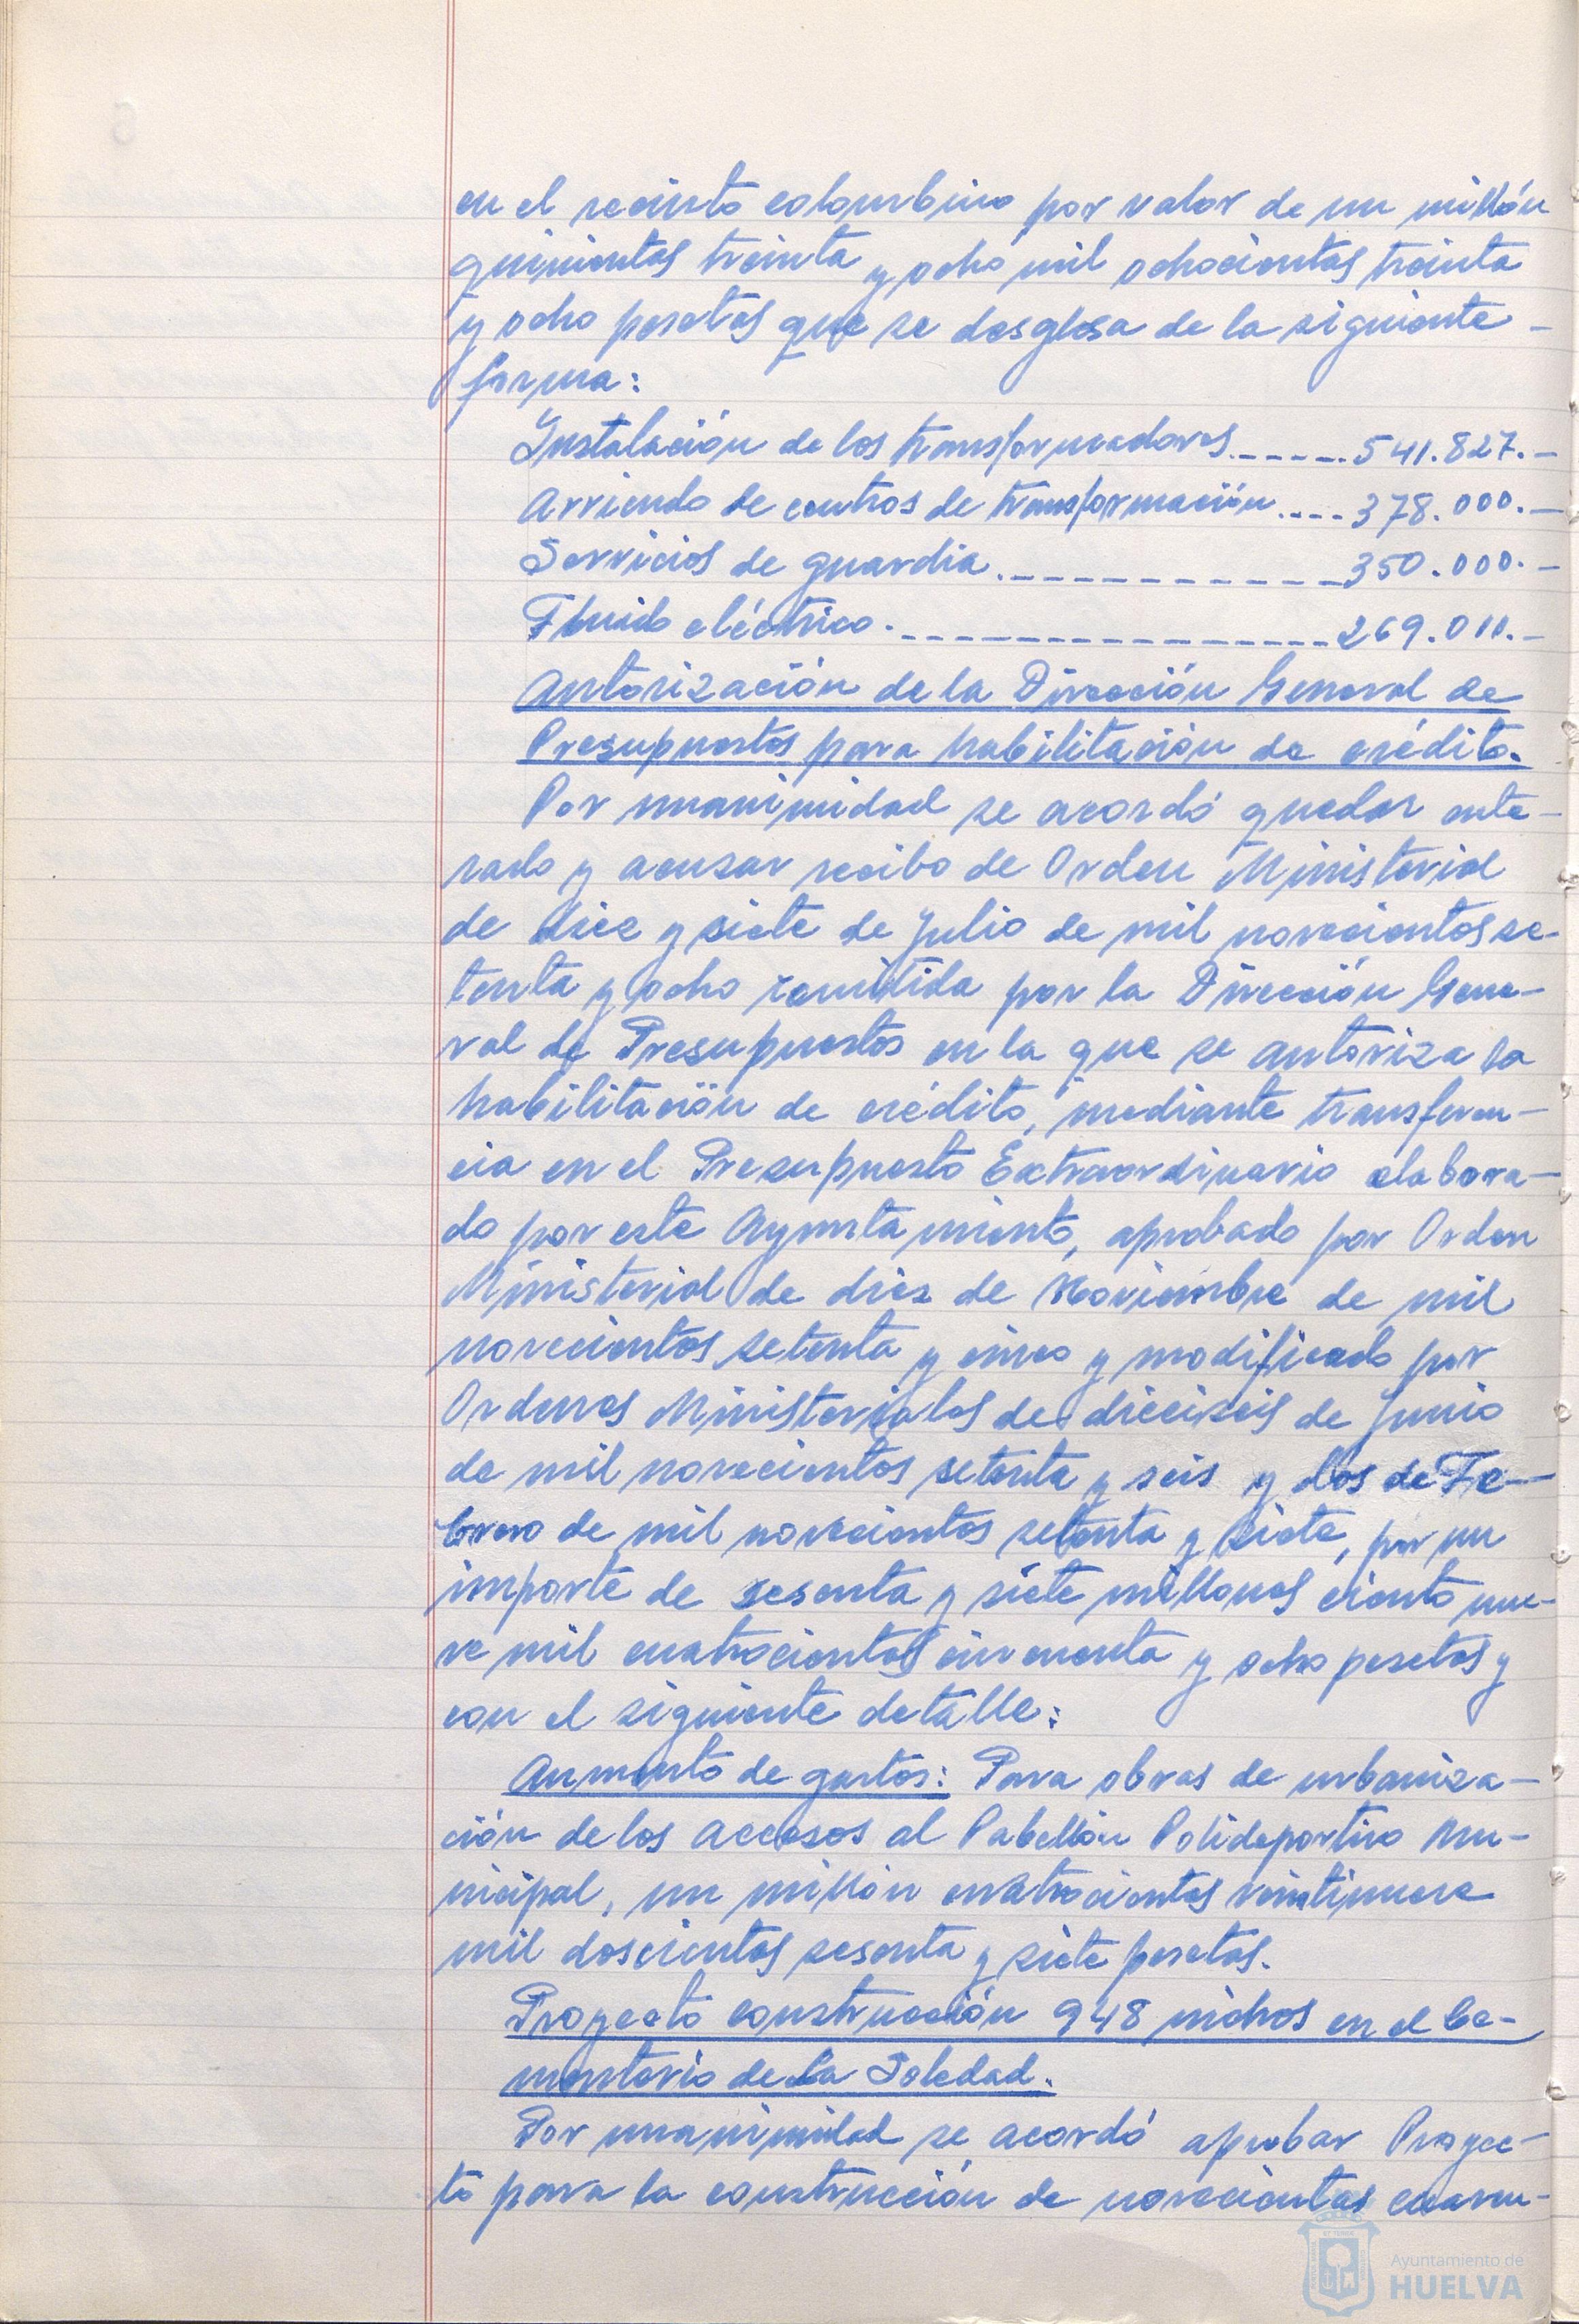 en el recinto colombino por valor de un millón
quinientas treinta y ocho mil ochocientas treinta
y ocho pesetas que se desglosa de la siguiente -
forma:
Instalación de los transformadores.-----541.827.-
Arriendo de centros de transformación.---378.000.-
Servicios de guardia.------------350.000.-
Fluido eléctrico.---------------269.011.-
Autorización de la Dirección General de
Presupuestos para habilitación de crédito.
Por unanimidad se acordó quedar ente-
rado y acusar recibo de Orden Ministerial
de diez y siete de Julio de mil novecientos se-
tenta y ocho remitida por la Dirección Gene-
ral de Presupuestos en la que se autoriza la
habilitación de crédito, mediante transferen-
cia en el Presupuesto Extraordinario elabora-
do por este Ayuntamiento, aprobado por Orden
Ministerial de diez de Noviembre de mil
novecientos setenta y cinco y modificado por
Ordenes Ministeriales de dieciseis de Junio
de mil novecientos setenta y seis y dos de Fe-
brero de mil novecientos setenta y siete, por un
importe de sesenta y siete millones ciento nue-
ve mil cuatrocientas cincuenta y ocho pesetas y
con el siguiente detalle:
Aumento de gastos: Para obras de urbaniza-
ción de los accesos al Pabellón Polideportivo Mu-
nicipal, un millón cuatrocientas veintinueve
mil doscientas sesenta y siete pesetas.
Proyecto construcción 948 nichos en el Ce-
menterio de la Soledad.
Por unanimidad se acordó aprobar Proyec-
to para la construcción de novecientas cuaren-
Ayuntamiento de
HUELVA